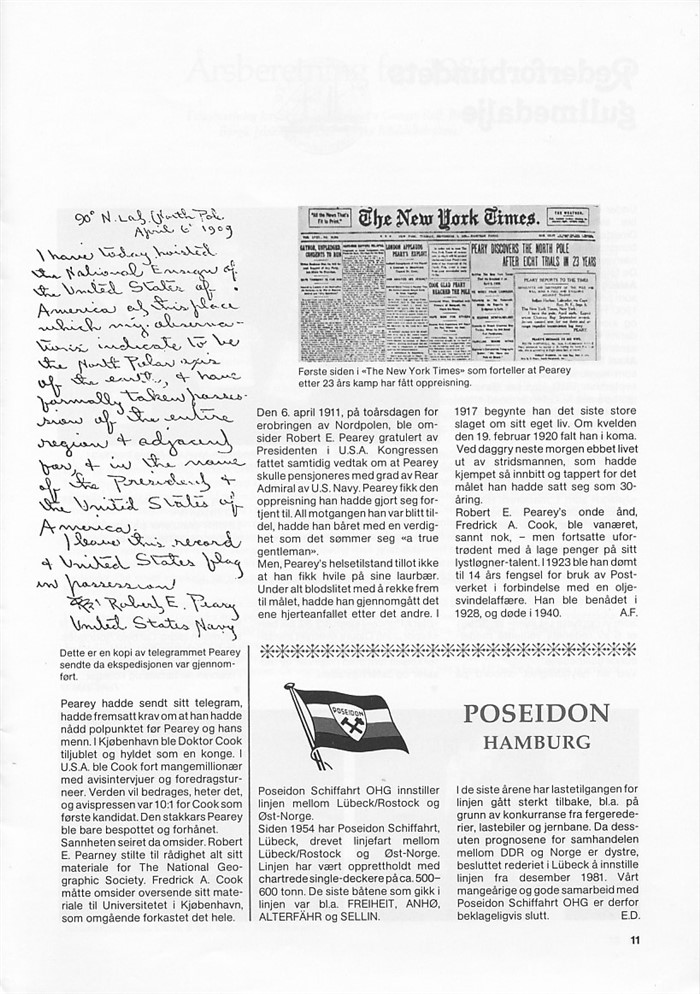 90° N. Lat., North Pole
April 6th 1909
I have today hoisted
the National Ensign of
the United States of
America at this place
which my observa-
tions indicate to be
the North Polar axis
of the earth, & have
formally taken posses-
sion of the entire
region & adjacent
for, & in the name
of the President &
the United States of
America.
I leave this record
& United States flag
in possession
Robert E. Peary
United States Navy
Dette er en kopi av telegrammet Pearey
sendte da ekspedisjonen var gjennom-
ført.
Pearey hadde sendt sitt telegram,
hadde fremsatt krav om at han hadde
nådd polpunktet før Pearey og hans
menn. I Kjøbenhavn ble Doktor Cook
tiljublet og hyldet som en konge. I
U.S.A. ble Cook fort mangemillionær
med avisintervjuer og foredragstur-
neer. Verden vil bedrages, heter det,
og avispressen var 10:1 for Cook som
første kandidat. Den stakkars Pearey
ble bare bespottet og forhånet.
Sannheten seiret da omsider. Robert
E. Pearney stilte til rådighet alt sitt
materiale for The National Geo-
graphic Society. Fredrick A. Cook
måtte omsider oversende sitt mate-
riale til Universitetet i Kjøbenhavn,
som omgående forkastet det hele.
"All the News That's
Fit to Print."
The New York Times.
THE WEATHER.
GAYNOR, UNPLEDGED,
CONSENTS TO RUN
LONDON APPLAUDS
PEARY'S EXPLOIT
COOK GLAD PEARY
REACHED THE POLE
PEARY DISCOVERS THE NORTH POLE
AFTER EIGHT TRIALS IN 23 YEARS
PEARY REPORTS TO THE TIMES
Første siden i «The New York Times» som forteller at Pearey
etter 23 års kamp har fått oppreisning.
Den 6. april 1911, på toårsdagen for
erobringen av Nordpolen, ble om-
sider Robert E. Pearey gratulert av
Presidenten i U.S.A. Kongressen
fattet samtidig vedtak om at Pearey
skulle pensjoneres med grad av Rear
Admiral av U.S. Navy. Pearey fikk den
oppreisning han hadde gjort seg for-
tjent til. All motgangen han var blitt til-
del, hadde han båret med en verdig-
het som det sømmer seg «a true
gentleman».
Men, Pearey's helsetilstand tillot ikke
at han fikk hvile på sine laurbær.
Under alt blodslitet med å rekke frem
til målet, hadde han gjennomgått det
ene hjerteanfallet etter det andre. I
1917 begynte han det siste store
slaget om sitt eget liv. Om kvelden
den 19. februar 1920 falt han i koma.
Ved daggry neste morgen ebbet livet
ut av stridsmannen, som hadde
kjempet så innbitt og tappert for det
målet han hadde satt seg som 30-
åring.
Robert E. Pearey's onde ånd,
Fredrick A. Cook, ble vanæret,
sannt nok, – men fortsatte ufor-
trødent med å lage penger på sitt
lystløgner-talent. I 1923 ble han dømt
til 14 års fengsel for bruk av Post-
verket i forbindelse med en olje-
svindelaffære. Han ble benådet i
1928, og døde i 1940. A.F.
POSEIDON
POSEIDON
HAMBURG
Poseidon Schiffahrt OHG innstiller
linjen mellom Lübeck/Rostock og
Øst-Norge.
Siden 1954 har Poseidon Schiffahrt,
Lübeck, drevet linjefart mellom
Lübeck/Rostock og Øst-Norge.
Linjen har vært opprettholdt med
chartrede single-deckere på ca. 500–
600 tonn. De siste båtene som gikk i
linjen var bl.a. FREIHEIT, ANHØ,
ALTERFÄHR og SELLIN.
I de siste årene har lastetilgangen for
linjen gått sterkt tilbake, bl.a. på
grunn av konkurranse fra fergerede-
rier, lastebiler og jernbane. Da dess-
uten prognosene for samhandelen
mellom DDR og Norge er dystre,
besluttet rederiet i Lübeck å innstille
linjen fra desember 1981. Vårt
mangeårige og gode samarbeid med
Poseidon Schiffahrt OHG er derfor
beklageligvis slutt. E.D.
11